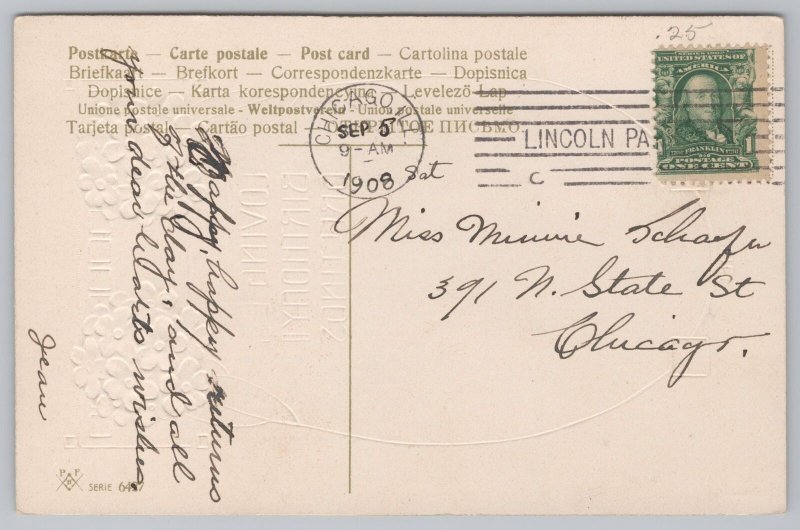 .25
Postkarte — Carte postale — Post card — Cartolina postale
Briefkaart — Brefkort — Correspondenzkarte — Dopisnica
Dopisnice — Karta korespondencyjna — Levelező Lap
Unione postale universale - Weltpostverein - Union postale universelle
Tarjeta postal — Cartão postal — ОТКРЫТОЕ ПИСЬМО
CHICAGO, ILL.
SEP 5
9-AM
1908
LINCOLN PA
C
UNITED STATES OF AMERICA
FRANKLIN
POSTAGE
1
ONE CENT
Sat
Miss Minnie Schaefer
391 N. State St
Chicago.
Happy, happy returns
of the day, and all
your dear hearts wishes.
Jean
P F
SERIE 64 7